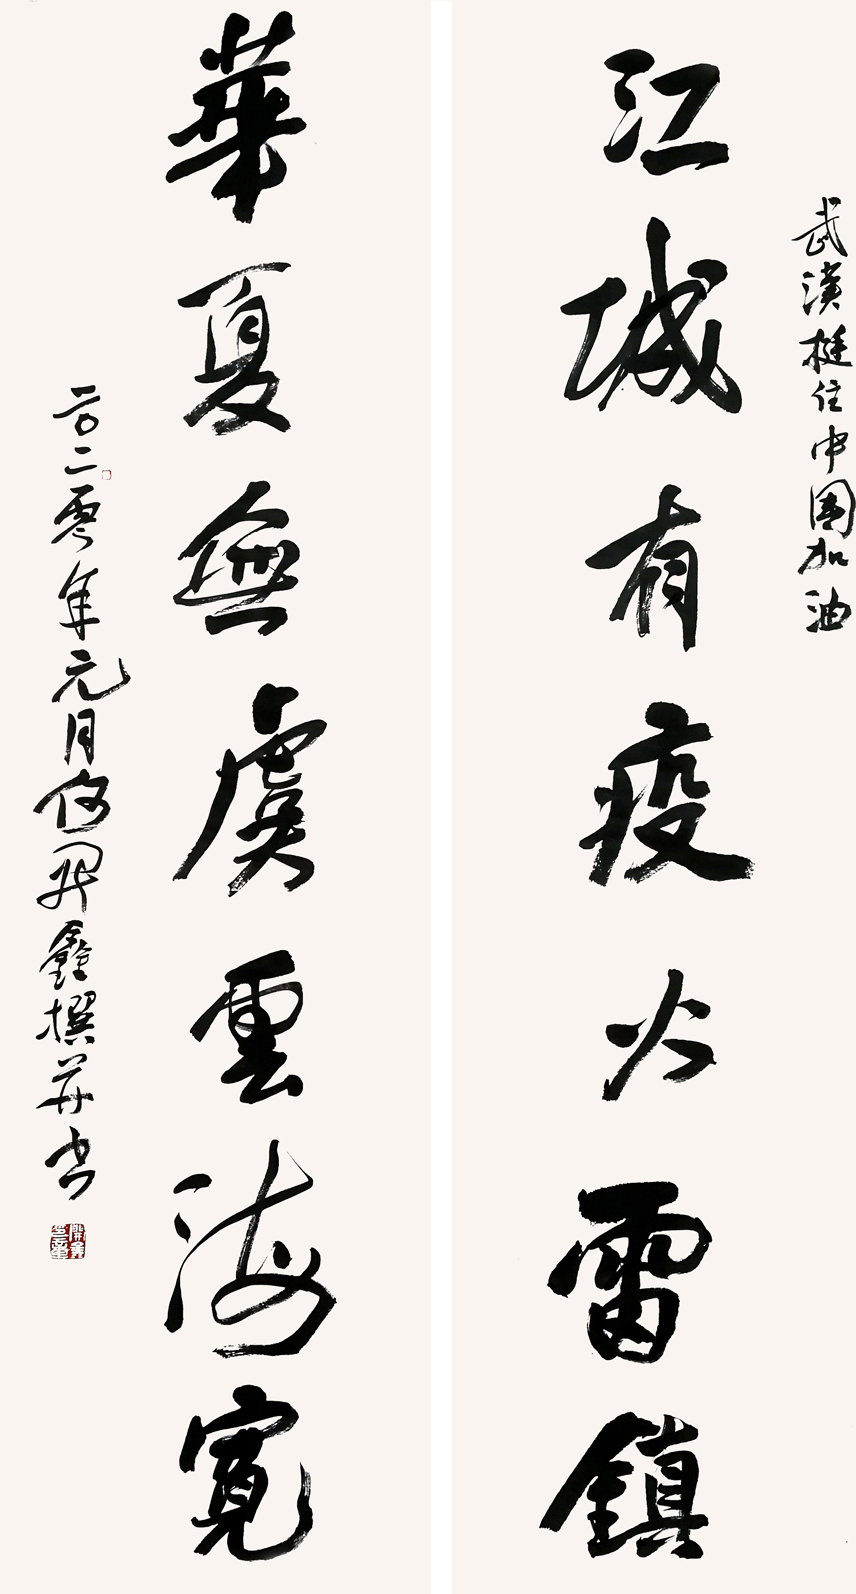 武漢挺住中國加油
江城有疫火雷鎮
華夏無虞雲海寬
二〇二零年元月何開鑫撰并书